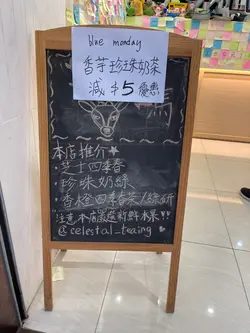 blue monday
香芋珍珠奶茶
減$5優惠
本店推介
·芝士四季春
·珍珠奶綠
·香橙四季春茶/綠妍
"注意本店嚴選新鮮水果
@celestal_teaing